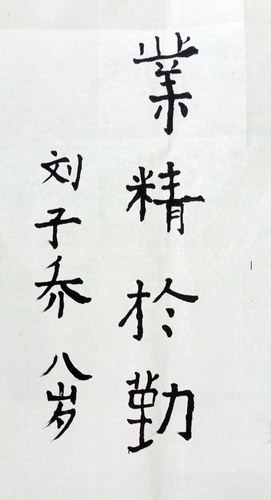 業精於勤
刘子乔八岁